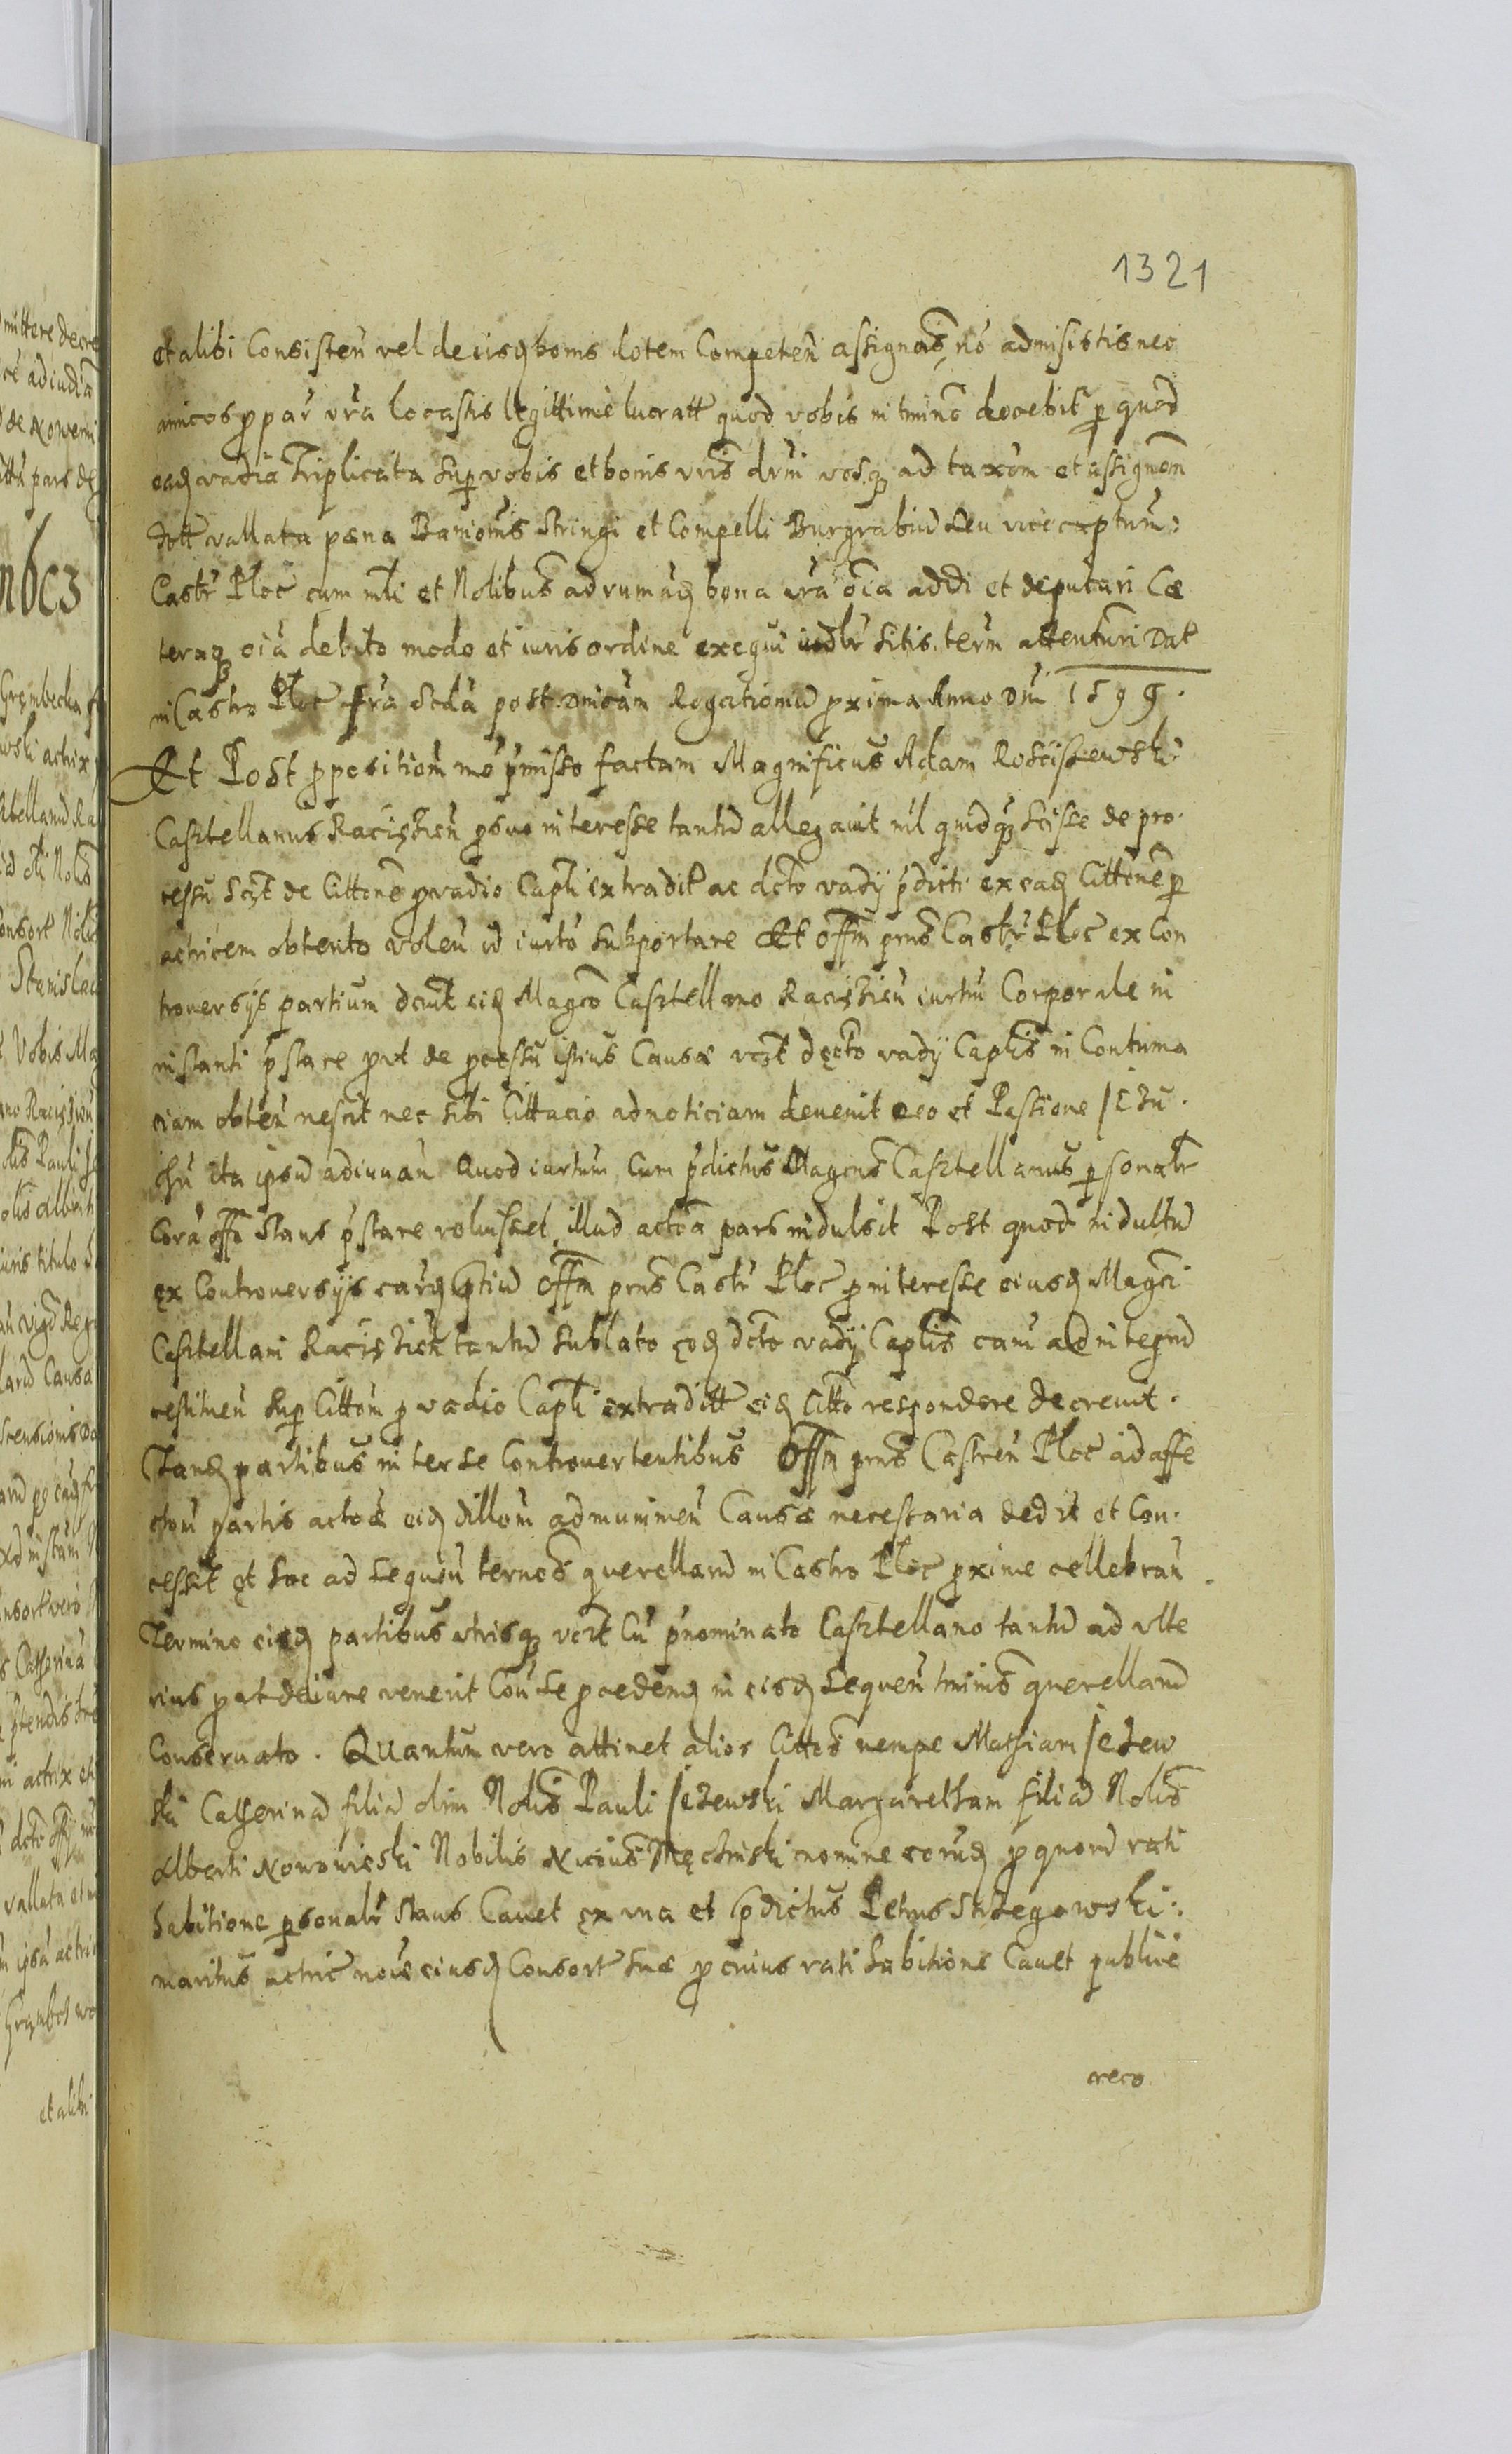 1321
et alibi Consisteñ vel de iisdẽ bonis dotem Competeñ assignas nõ admisistis nec
amicos p par vr̃a locastis legittime lucratt quod vobis in tmino docebit p quod
eadẽ vadia triplicata sup vobis et bonis vr̃is drũi vosq ad taxõm et assignõn
dott vallata pæna Banionis stringi et Compelli Burgrabiũ seu vice captum:
Castr Ploc̃ cum mlti et Nolibus ad rumãdẽ bona vr̃a oĩa addi et deputari Cæ
teraq oĩa debito modo et iuris ordine exequi sitis term attenturi Dat
in Castro Ploc̃ fr̃a Scdã post Dnicãm Rogationũ pxima Anno Dnĩ 1599.
Et Post ppositiõm mõ p̃misso factam Magnificus Adam Rosciszewski
Casztellanus Raciązień p suo interesse tantũ allegauit nil quidq scisse de pro.
cessu sczt de Cittone p vadio Capti extradit ac dcto vadÿ p̃dicti ex eadẽ Cittone p
actricem obtento voleñ id iurto supportare Et Offm prñs Castr Ploc̃ ex Con
trouersÿs partium dcuit eidẽ Magco Casztellano Raciązień iurtm Corporale in
instanti p̃stare put de pcessu istius Causæ vczt dẹcto vadÿ Captis in Contuma
ciam obteñ nescit nec sibi Cittacio ad noticiam deuenit deo et Passione Jezu.
chũ ita ipsũ adiuuañ Quod iurtum Cum p̃dictus Magcus Casztellanus psonaltr
Corã offo stans p̃stare voluisset illud actõa pars indulsit Post quod indultũ
ex Controuersÿs earũdẽ ptiũ Offm prñs Castr Ploc̃ p interesse eiusdẽ Magci
Casztellani Raciązień tantũ sublato eodẽ dcto vadÿ Captis eam ad integrũ
restitueñ Sup Cittõm p vadio Capti extraditt eidẽ Citto respondere decreuit.
Tandẽ partibus inter se Controuertentibus Offm prñs Castreñ Ploc̃ ad affe
ctõm partis actoæ eidẽ dillõm ad munimeñ Causæ necessaria dedit et Con.
cessit et hoc ad sequeñ termos querellarũ in Castro Ploc̃ pxime cellebrañ
Termino eisdẽ partibus utrisq vczt Cũ p̃nominato Casztellano tantũ ad vlte
rius put de iure venerit Coñ se pcedenẽ in eisdẽ sequeñ tminis querellarũ
Conseruato. Quantum vero attinet alios Cittos nempe Mathiam Jezew
ski Catherinã filiã olim Nolis Pauli Jezewski Margaretham filiã Nolis
Alberti Nowowieski Nobilis nomine eorũdẽ p quorũ rati
habitione psonaltr stans Cauet ex vna et p̃dictus Petrus Strzegowski:
maritus actric noĩe eiusdẽ Consort suæ p cuius rati habitione Cauet publice
reco